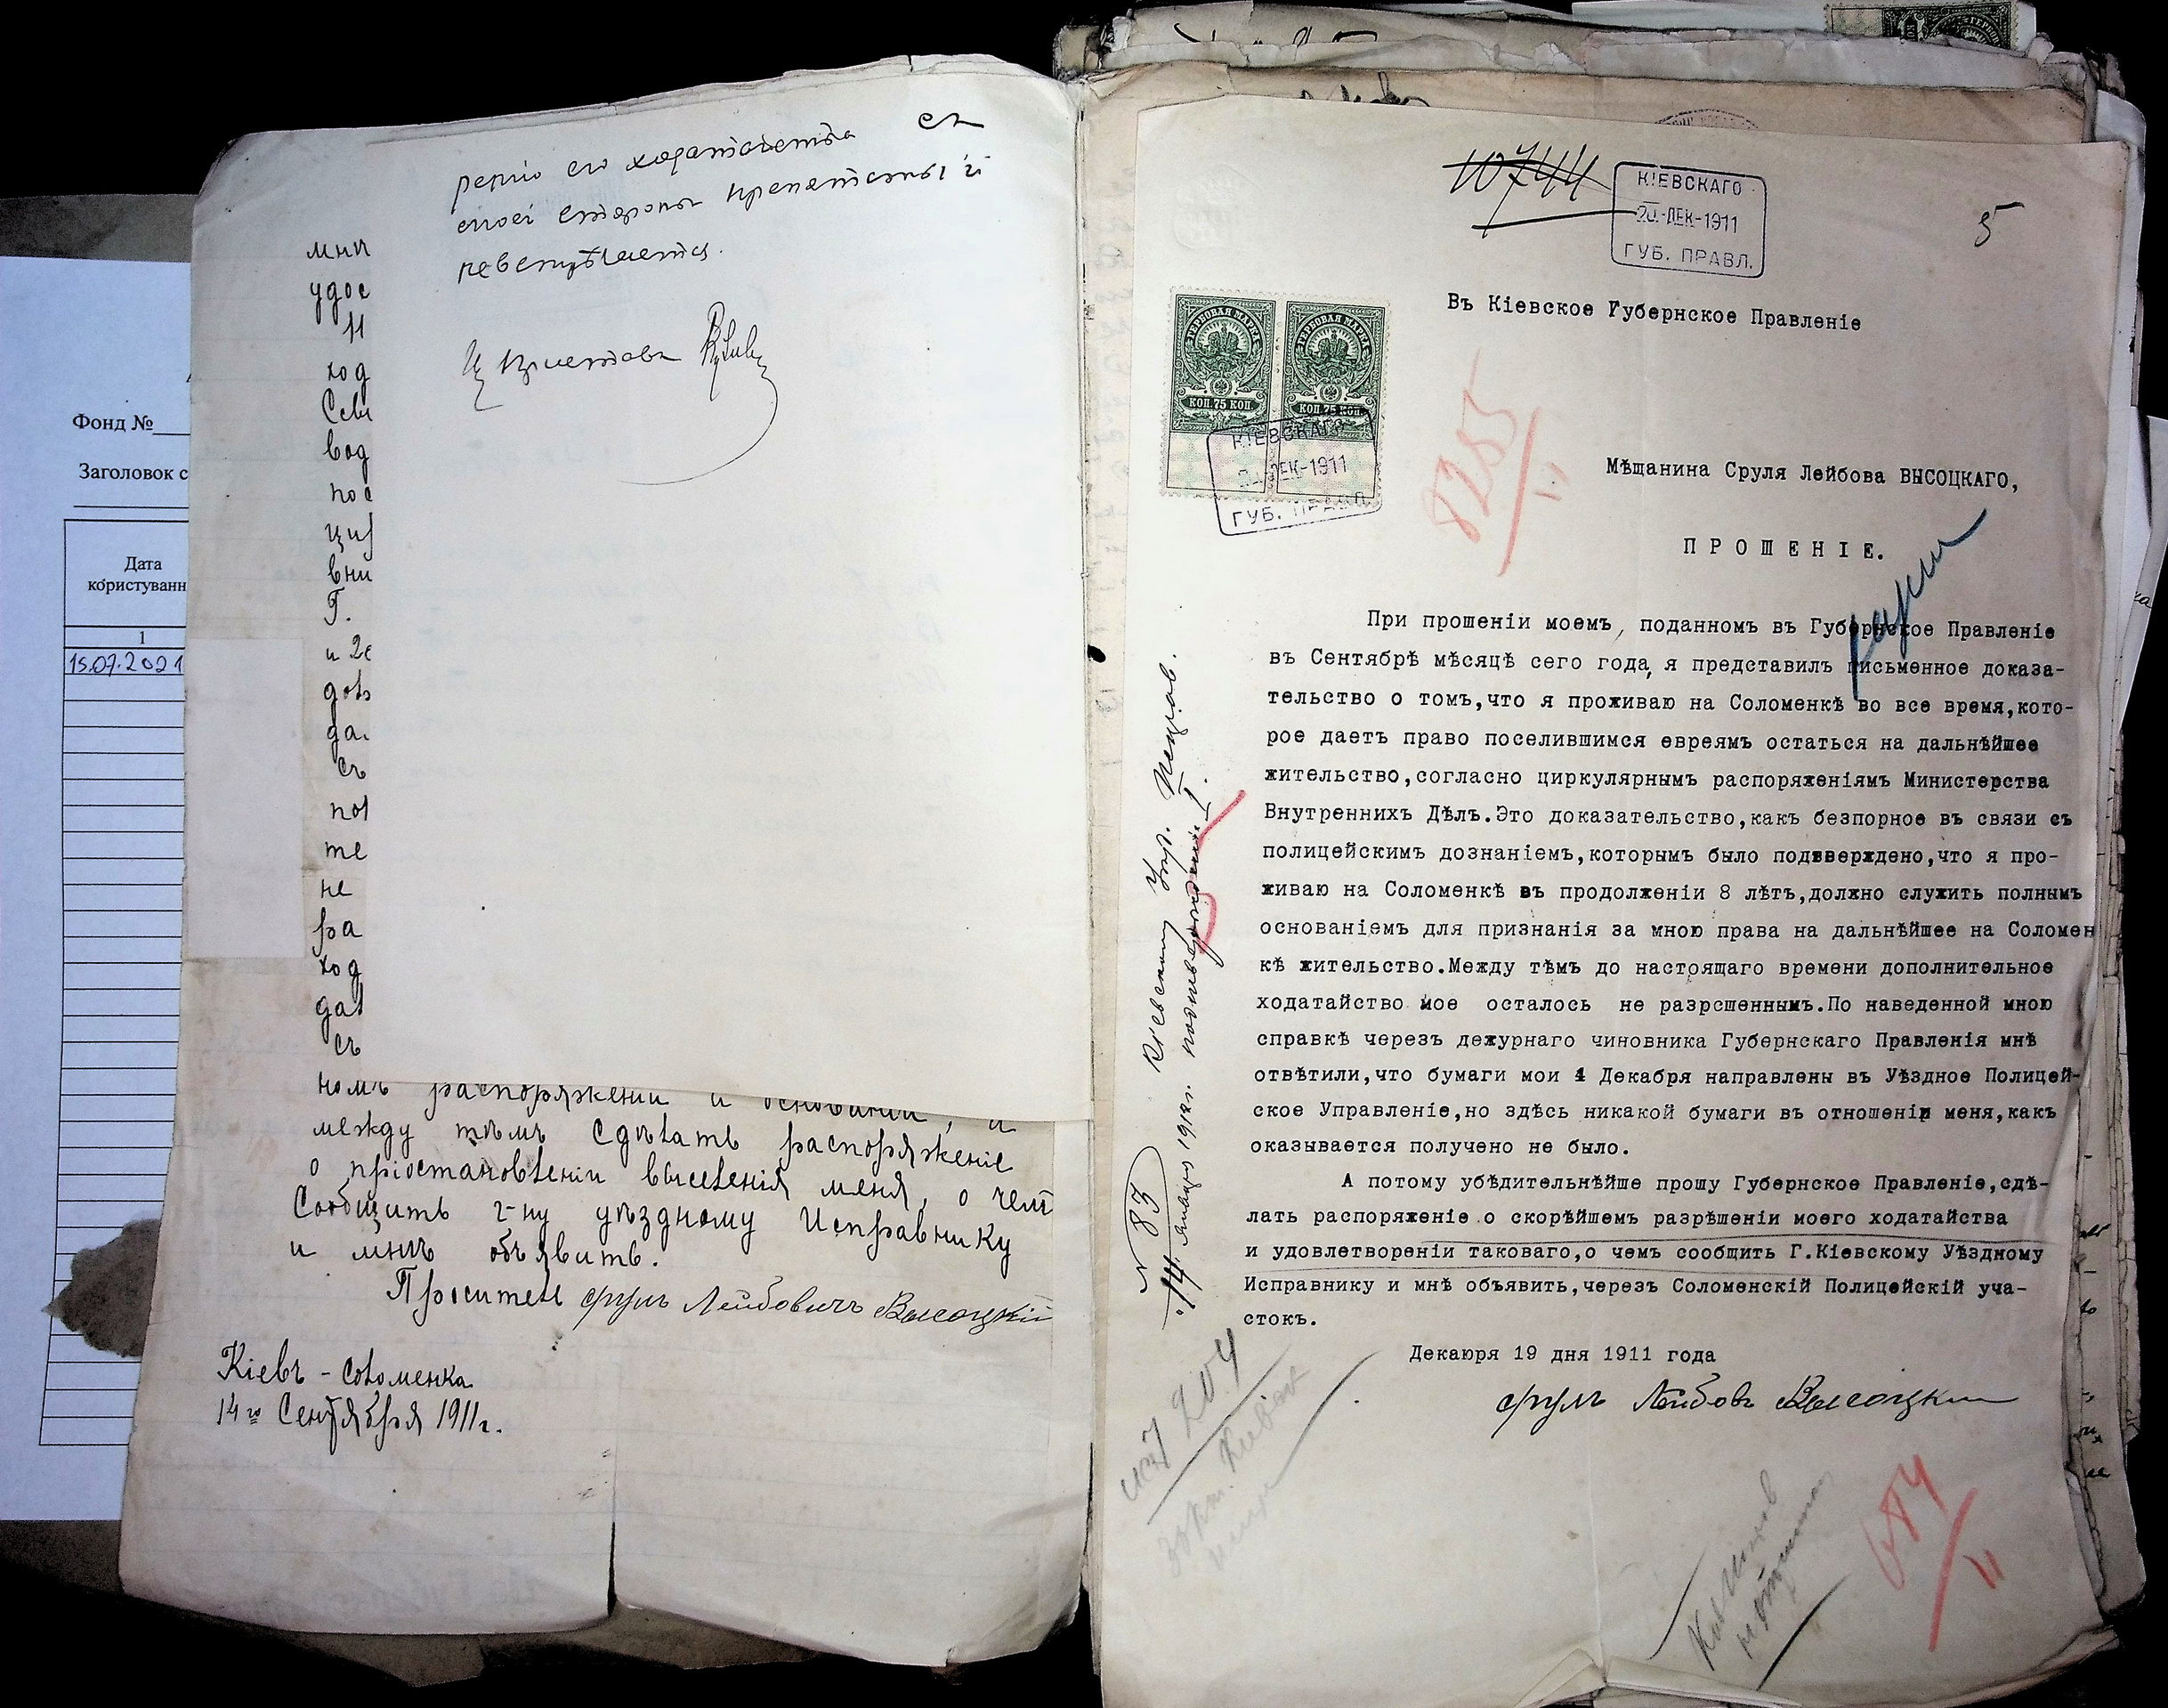 Фонд №
Заголовок с
Дата
користуванн
1
15.07.2021
его ходатайства съ
моей стороны препятствій
не встрѣчается.
Приставъ
мнѣ
удос
н
ход
вод
пос
цир
вни
Г.
и
да
съ
пол
те
не
ра
ход
дат
съ
номъ распоряженіи и основаніи, а
между тѣмъ сдѣлать распоряженіе
о пріостановленіи выселенія меня, о чемъ
Сообщить г-ну уѣздному Исправнику
и мнѣ объявить.
Проситель Сруль Лейбовичъ Высоцкій
Кіевъ - Соломенка
14го Сентября 1911г.
10744
КІЕВСКАГО
20-ДЕК-1911
ГУБ. ПРАВЛ.
5
Въ Кіевское Губернское Правленіе
ГЕРБОВАЯ МАРКА
КОП. 75 КОП.
ГЕРБОВАЯ МАРКА
КОП. 75 КОП.
КІЕВСКАГО
ДЕК-1911
ГУБ. ПРАВЛ.
8255/11
Мѣщанина Сруля Лейбова ВЫСОЦКАГО,
ПРОШЕНІЕ.
При прошеніи моемъ, поданномъ въ Губернское Правленіе
въ Сентябрѣ мѣсяцѣ сего года, я представилъ письменное доказа-
тельство о томъ,что я проживаю на Соломенкѣ во все время,кото-
рое даетъ право поселившимся евреямъ остаться на дальнѣйшее
жительство,согласно циркулярнымъ распоряженіямъ Министерства
Внутреннихъ Дѣлъ.Это доказательство,какъ безпорное въ связи съ
полицейскимъ дознаніемъ,которымъ было подтверждено,что я про-
живаю на Соломенкѣ въ продолженіи 8 лѣтъ,должно служить полнымъ
основаніемъ для признанія за мною права на дальнѣйшее на Соломен
кѣ жительство.Между тѣмъ до настоящаго времени дополнительное
ходатайство мое осталось не разрсшеннымъ.По наведенной мною
справкѣ черезъ дежурнаго чиновника Губернскаго Правленія мнѣ
отвѣтили,что бумаги мои 4 Декабря направлены въ Уѣздное Полицей-
ское Управленіе,но здѣсь никакой бумаги въ отношеніи меня,какъ
оказывается получено не было.
А потому убѣдительнѣйше прошу Губернское Правленіе,сдѣ-
лать распоряженіе о скорѣйшемъ разрѣшеніи моего ходатайства
и удовлетвореніи таковаго,о чемъ сообщить Г.Кіевскому Уѣздному
Исправнику и мнѣ объявить,черезъ Соломенскій Полицейскій уча-
стокъ.
Декаюря 19 дня 1911 года
Сруль Лейбовъ Высоцкій
Кіевскому Уѣр. Исправ.
N 83
14 Января 1912г.
484/11